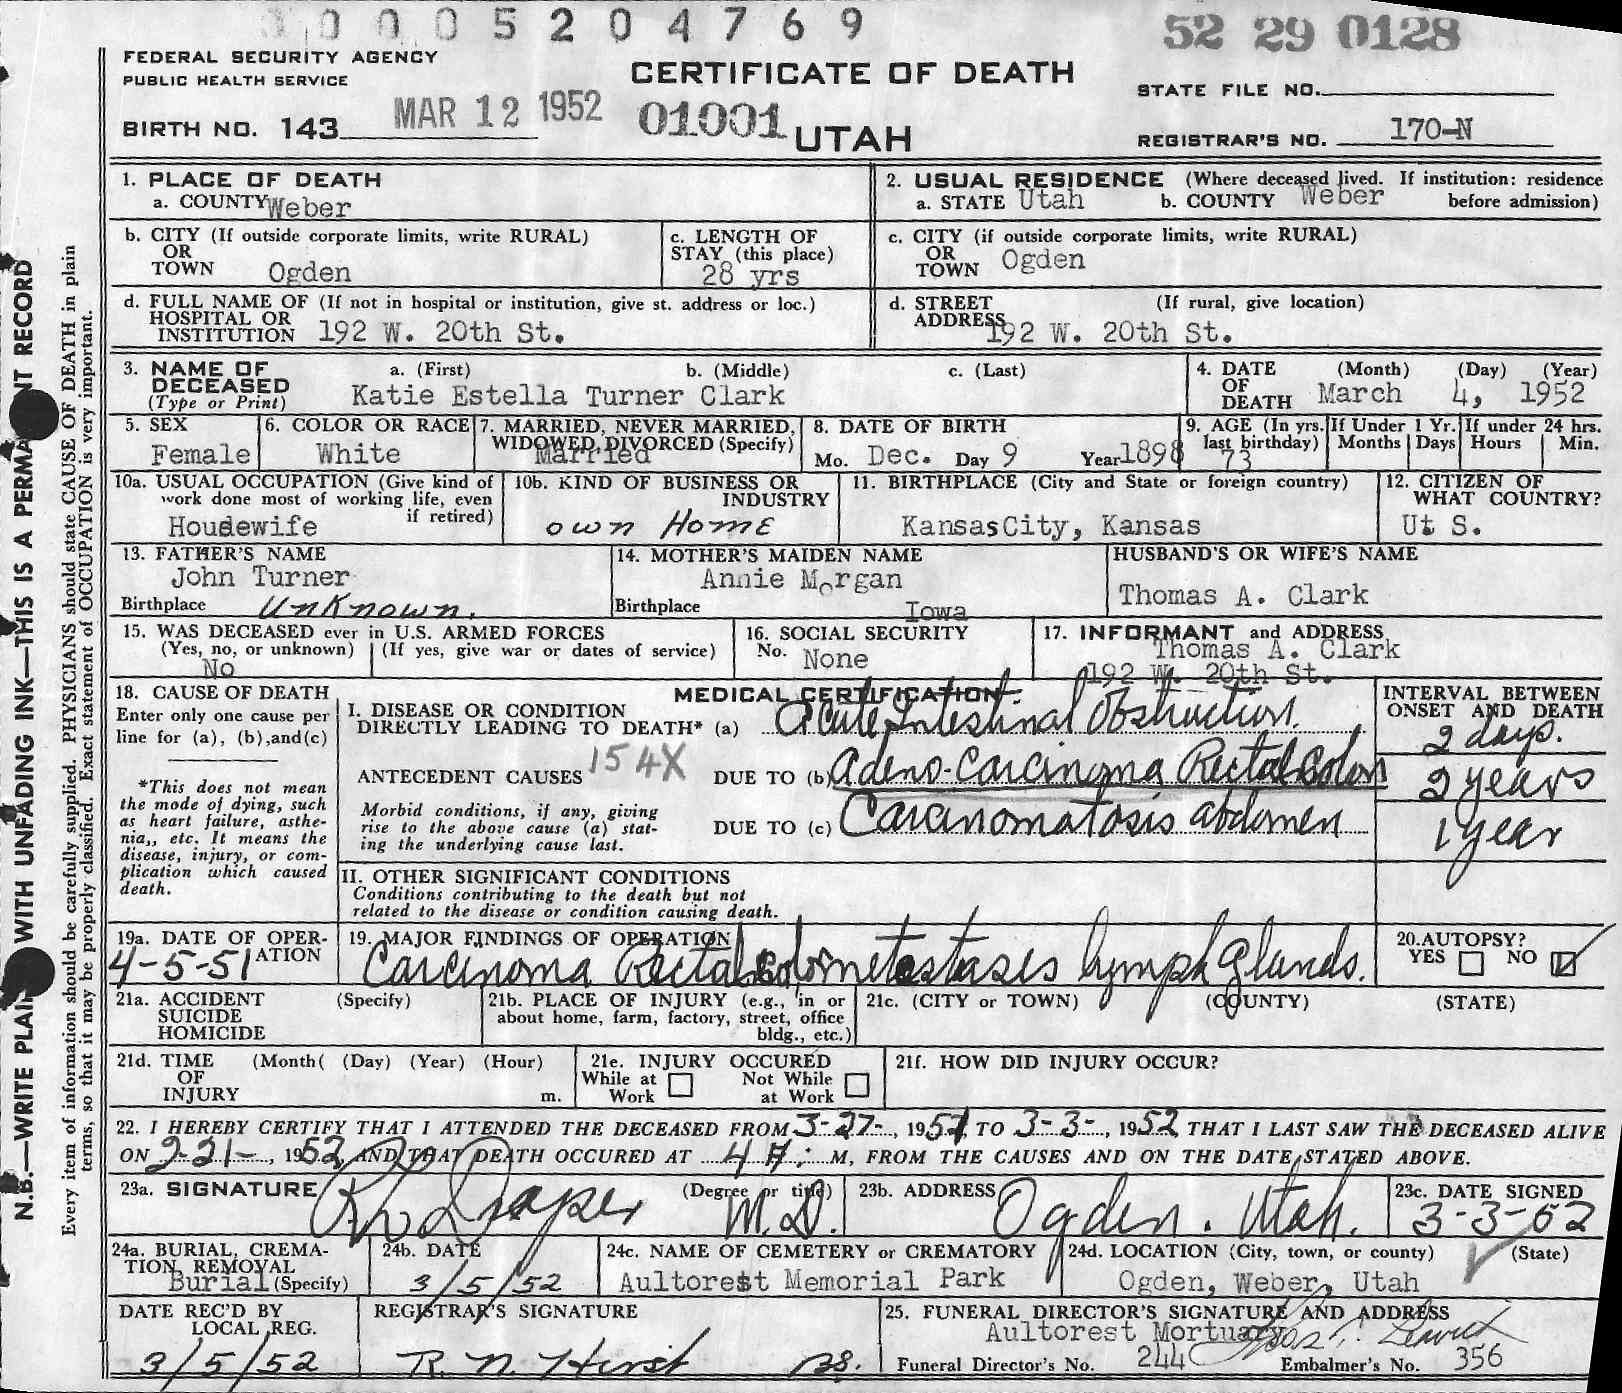 0 0 0 0 5 2 0 4 7 6 9
52 29 0128
FEDERAL SECURITY AGENCY
PUBLIC HEALTH SERVICE
CERTIFICATE OF DEATH
STATE FILE NO.
BIRTH NO. 143
MAR 12 1952
01001
UTAH
REGISTRAR'S NO. 170-N
N.B.—WRITE PLAI WITH UNFADING INK—THIS IS A PERMA NT RECORD
Every item of information should be carefully supplied. PHYSICIANS should state CAUSE OF DEATH in plain
terms, so that it may be properly classified. Exact statement of OCCUPATION is very important.
1. PLACE OF DEATH
a. COUNTY Weber
2. USUAL RESIDENCE (Where deceased lived. If institution: residence
a. STATE Utah b. COUNTY Weber before admission)
b. CITY (If outside corporate limits, write RURAL)
OR
TOWN Ogden
c. LENGTH OF
STAY (this place)
28 yrs
c. CITY (if outside corporate limits, write RURAL)
OR
TOWN Ogden
d. FULL NAME OF (If not in hospital or institution, give st. address or loc.)
HOSPITAL OR
INSTITUTION 192 W. 20th St.
d. STREET (If rural, give location)
ADDRESS 192 W. 20th St.
3. NAME OF a. (First) b. (Middle) c. (Last)
DECEASED
(Type or Print) Katie Estella Turner Clark
4. DATE (Month) (Day) (Year)
OF
DEATH March 4, 1952
5. SEX
Female
6. COLOR OR RACE
White
7. MARRIED, NEVER MARRIED,
WIDOWED, DIVORCED (Specify)
Married
8. DATE OF BIRTH
Mo. Dec. Day 9 Year 1898
9. AGE (In yrs.
last birthday)
73
If Under 1 Yr.
Months Days
If under 24 hrs.
Hours Min.
10a. USUAL OCCUPATION (Give kind of
work done most of working life, even
if retired)
Houdewife
10b. KIND OF BUSINESS OR
INDUSTRY
own Home
11. BIRTHPLACE (City and State or foreign country)
KansasCity, Kansas
12. CITIZEN OF
WHAT COUNTRY?
Ut S.
13. FATHER'S NAME
John Turner
Birthplace Unknown.
14. MOTHER'S MAIDEN NAME
Annie Morgan
Birthplace Iowa
HUSBAND'S OR WIFE'S NAME
Thomas A. Clark
15. WAS DECEASED ever in U.S. ARMED FORCES
(Yes, no, or unknown) (If yes, give war or dates of service)
No
16. SOCIAL SECURITY
No. None
17. INFORMANT and ADDRESS
Thomas A. Clark
192 W. 20th St.
18. CAUSE OF DEATH
Enter only one cause per
line for (a), (b), and (c)
*This does not mean
the mode of dying, such
as heart failure, asthe-
nia,, etc. It means the
disease, injury, or com-
plication which caused
death.
MEDICAL CERTIFICATION
I. DISEASE OR CONDITION
DIRECTLY LEADING TO DEATH* (a) Acute Intestinal Obstruction.
154X
ANTECEDENT CAUSES DUE TO (b) Adeno-Carcinoma Rectal Colon
Morbid conditions, if any, giving
rise to the above cause (a) stat-
ing the underlying cause last.
DUE TO (c) Carcinomatosis abdomen
INTERVAL BETWEEN
ONSET AND DEATH
2 days.
2 years
1 year
II. OTHER SIGNIFICANT CONDITIONS
Conditions contributing to the death but not
related to the disease or condition causing death.
19a. DATE OF OPER-
ATION
4-5-51
19. MAJOR FINDINGS OF OPERATION
Carcinoma Rectal Colon metastases lymph glands.
20. AUTOPSY?
YES NO
21a. ACCIDENT (Specify)
SUICIDE
HOMICIDE
21b. PLACE OF INJURY (e.g., in or
about home, farm, factory, street, office
bldg., etc.)
21c. (CITY or TOWN) (COUNTY) (STATE)
21d. TIME (Month( (Day) (Year) (Hour)
OF
INJURY m.
21e. INJURY OCCURED
While at Work Not While at Work
21f. HOW DID INJURY OCCUR?
22. I HEREBY CERTIFY THAT I ATTENDED THE DECEASED FROM 3-27-, 1951, TO 3-3-, 1952, THAT I LAST SAW THE DECEASED ALIVE
ON 2-21-, 1952, AND THAT DEATH OCCURED AT 4 A. M, FROM THE CAUSES AND ON THE DATE STATED ABOVE.
23a. SIGNATURE (Degree or title)
Draper M.D.
23b. ADDRESS
Ogden. Utah.
23c. DATE SIGNED
3-3-52
24a. BURIAL, CREMA-
TION, REMOVAL
Burial (Specify)
24b. DATE
3/5/52
24c. NAME OF CEMETERY or CREMATORY
Aultorest Memorial Park
24d. LOCATION (City, town, or county) (State)
Ogden, Weber, Utah
DATE REC'D BY
LOCAL REG.
3/5/52
REGISTRAR'S SIGNATURE
R. N. Hirst
25. FUNERAL DIRECTOR'S SIGNATURE AND ADDRESS
Aultorest Mortuary
Funeral Director's No. 244 Embalmer's No. 356